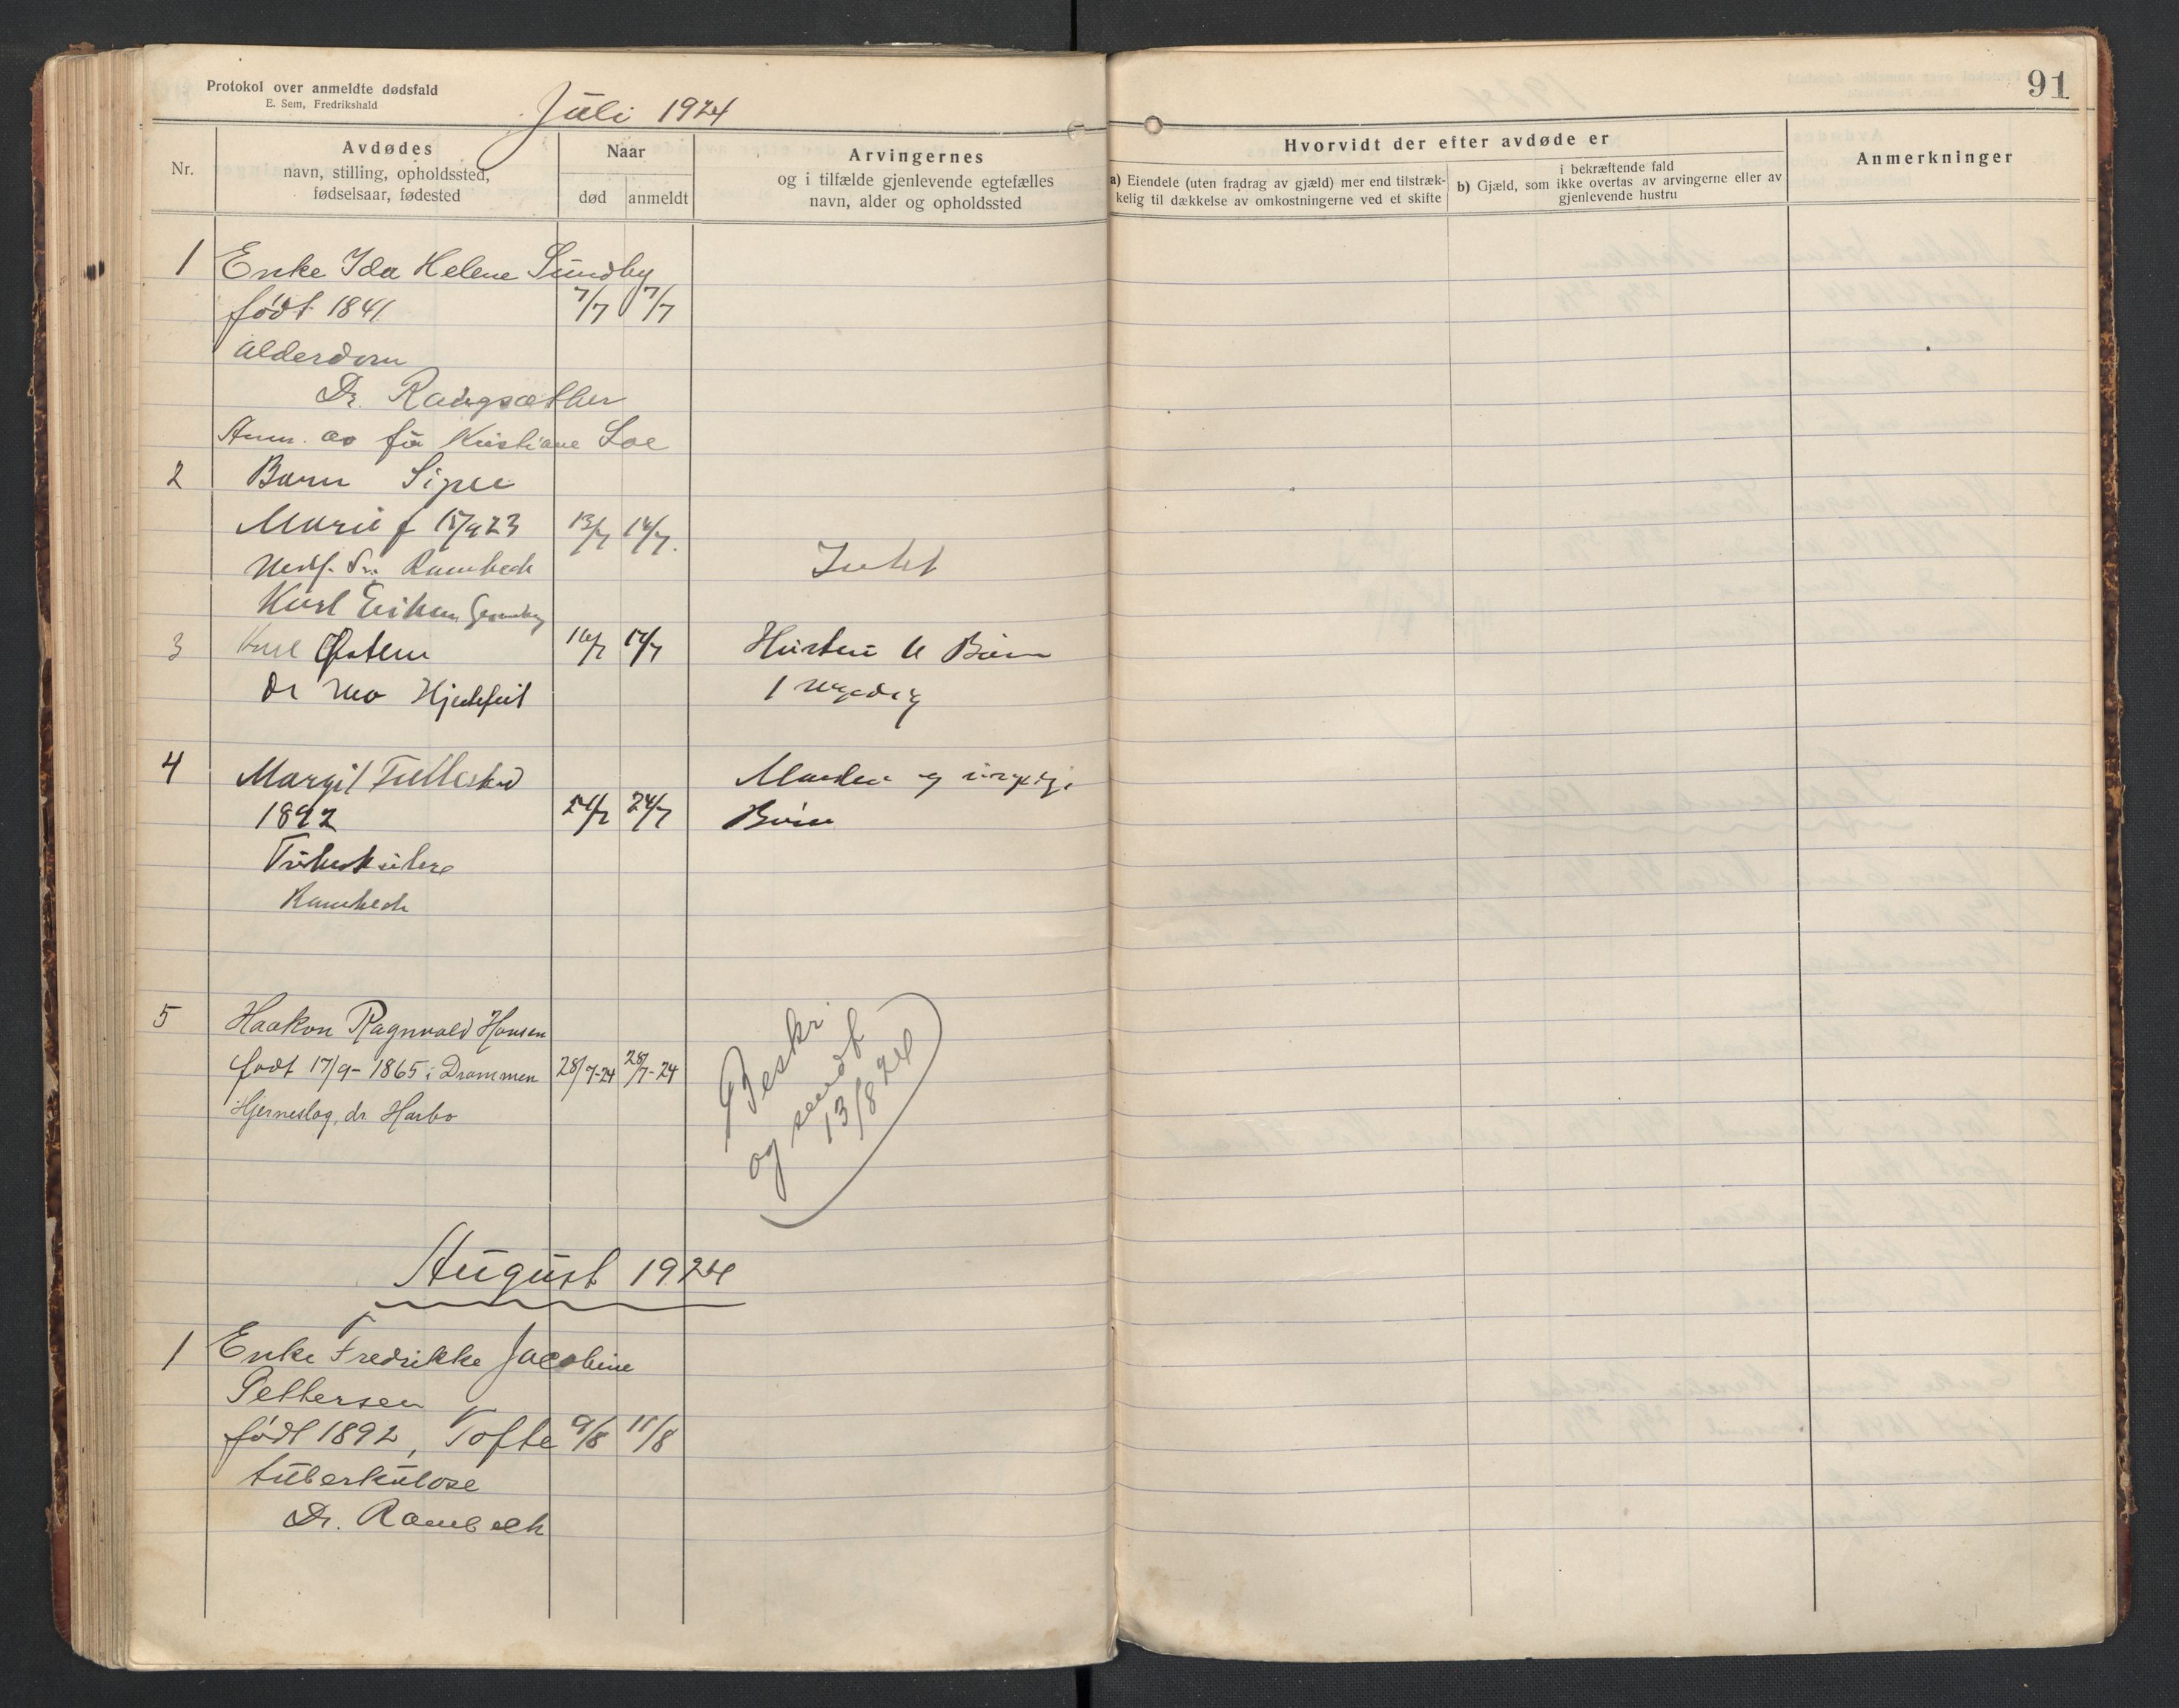 Protokol over anmeldte dødsfald
E. Sem, Fredrikshald
Juli 1924
91
Nr.
Avdødes
navn, stilling, opholdssted,
fødselsaar, fødested
Naar
død
anmeldt
Arvingernes
og i tilfælde gjenlevende egtefælles
navn, alder og opholdssted
Hvorvidt der efter avdøde er
a) Eiendele (uten fradrag av gjæld) mer end tilstræk-
kelig til dækkelse av omkostningerne ved et skifte
i bekræftende fald
b) Gjæld, som ikke overtas av arvingerne eller av
gjenlevende hustru
Anmerkninger
1 Enke Ida Helene Sundby
født 1841 7/7 7/7
Alderdom
Dr. Raugsæther
Anm. av fru Kristiane Loe
2 Barn Signe
Marie f 15/9 23 13/7 14/7.
Dr. Rambech Intet
Karl
3 Østern 16/7 17/7 Hustru Børn
Dr Mo Hjertefeil 1 umyndig
4 Margit
1892 24/7 Manden og umyndige
Børn
Tuberkulose
Rambech
5 Haakon Ragnvald Hansen
født 17/9 - 1865 i Drammen 28/7-24 28/7-24
Hjerneslag, dr. Harbo
Beskr.
og sendt
13/8 24
August 1924
1 Enke Fredrikke Jacobine
Pettersen
født 1892, Tofte 9/8 11/8
tuberkulose
Dr. Rambech